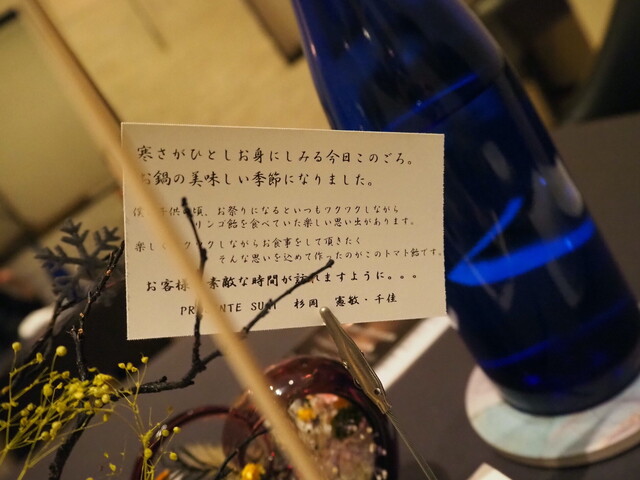 寒さがひとしお身にしみる今日このごろ。
お鍋の美味しい季節になりました。
僕 子供の頃、お祭りになるといつもワクワクしながら
リンゴ飴を食べていた楽しい思い出があります。
楽しく ワクワクしながらお食事をして頂きたく
そんな思いを込めて作ったのがこのトマト飴です。
お客様 素敵な時間が訪れますように。。。
PR NTE SU I 杉岡 憲敏・千佳